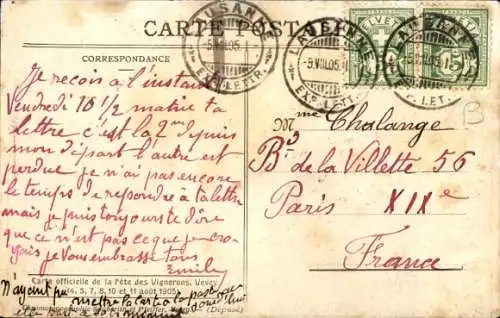 CARTE POSTALE
CORRESPONDANCE
LAUSANNE
-5.VIII.05.
EXP. LETTR.
LAUSANNE
-5.VIII.05.
EXP. LETT.
HELVETIA
5
Je reçois à l'instant
Vendredi 10 1/2 matin ta
lettre c'est la 2me depuis
mon départ l'autre est
perdue je n'ai pas encore
le temps de repondre à ta lettre
mais je puis toujours te dire
que ce n'est pas ce que je cro-
yais je vous embrasse tous
Emily
Mme Chalange
Bd de la Villette 56
Paris XIXe
France
B
Carte officielle de la Fête des Vignerons, Vevey
(4, 5, 7, 8, 10 et 11 août 1905)
N'ayant pu mettre la carte à la poste
(Déposé)